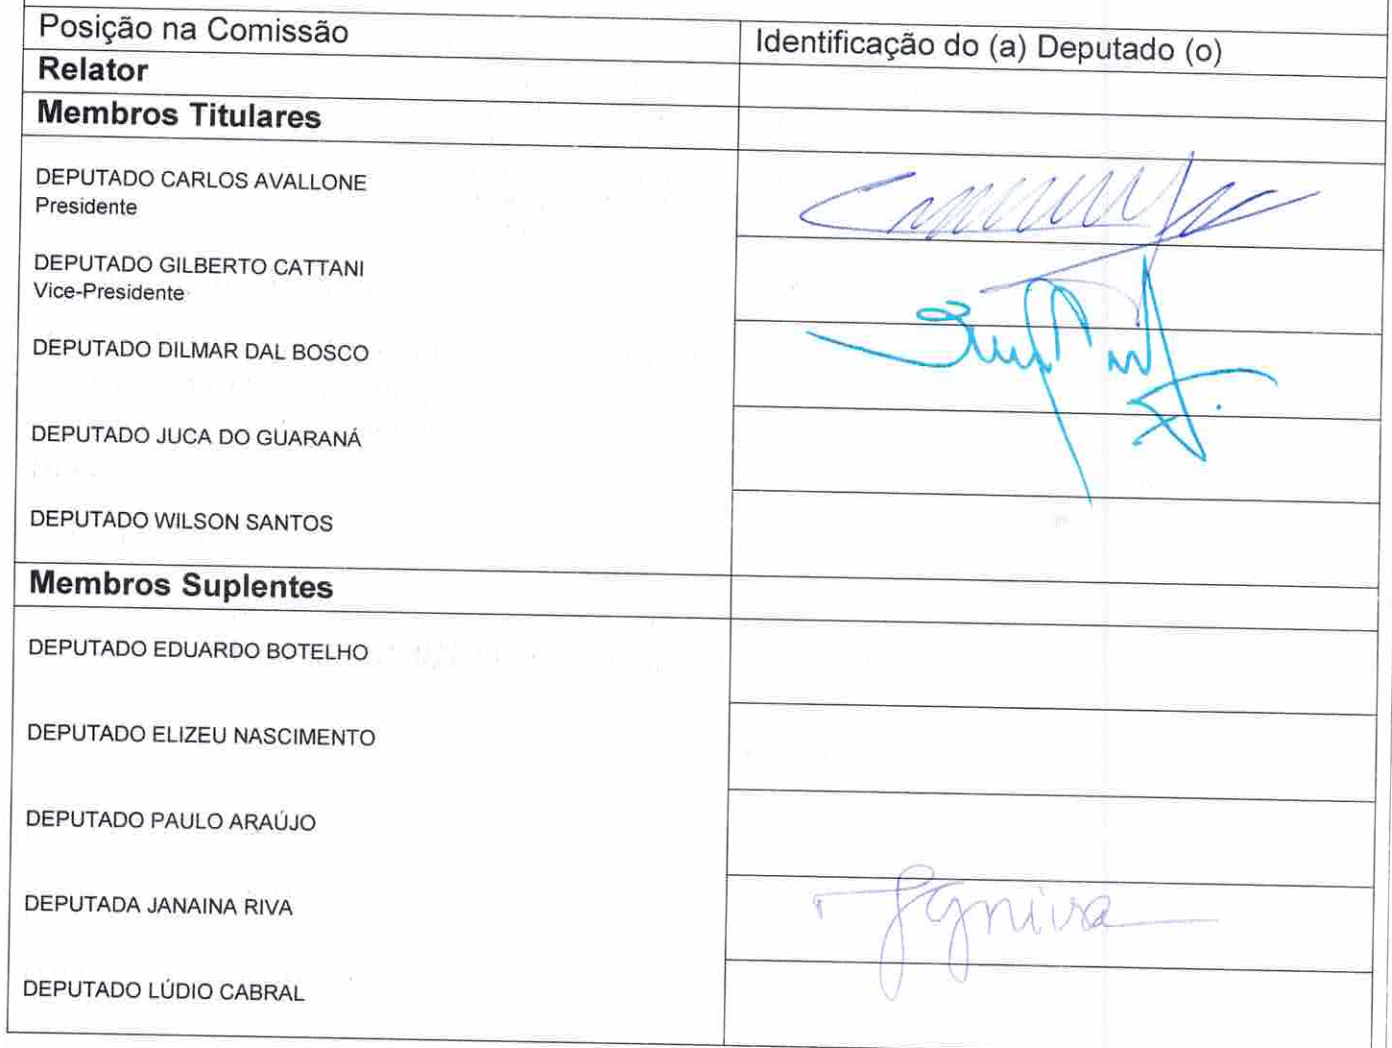 Posição na Comissão
Identificação do (a) Deputado (o)
Relator
Membros Titulares
DEPUTADO CARLOS AVALLONE
Presidente
DEPUTADO GILBERTO CATTANI
Vice-Presidente
DEPUTADO DILMAR DAL BOSCO
DEPUTADO JUCA DO GUARANÁ
DEPUTADO WILSON SANTOS
Membros Suplentes
DEPUTADO EDUARDO BOTELHO
DEPUTADO ELIZEU NASCIMENTO
DEPUTADO PAULO ARAÚJO
DEPUTADA JANAINA RIVA
DEPUTADO LÚDIO CABRAL